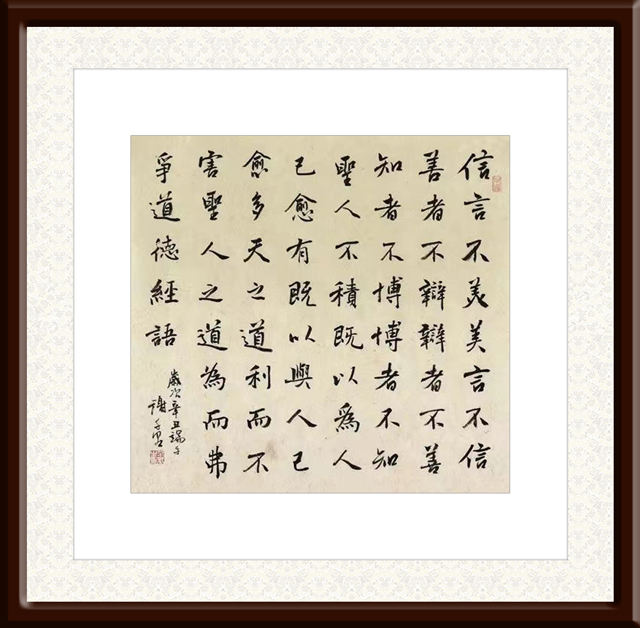 信言不美美言不信
善者不辯辯者不善
知者不博博者不知
聖人不積既以爲人
己愈有既以與人己
愈多天之道利而不
害聖人之道為而弗
爭道德經語
歲次辛丑端午
謝子